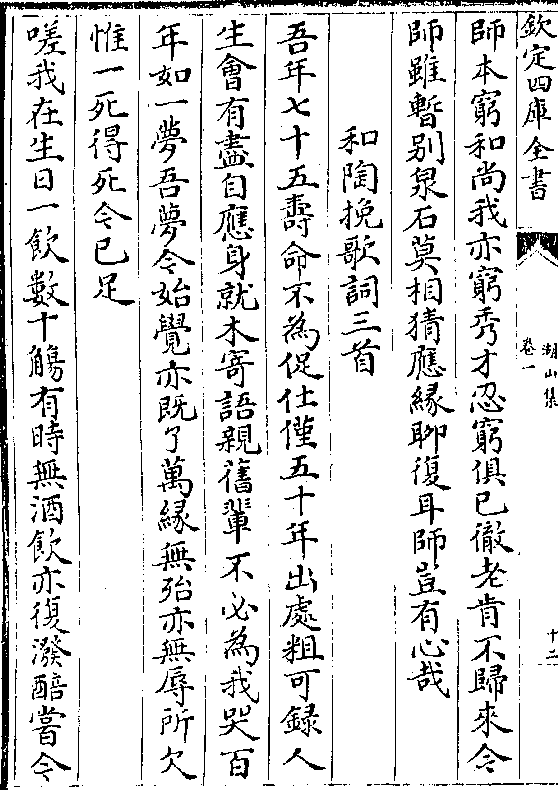 欽定四庫全書
湖山集
卷一
十二
師本窮和尚我亦窮秀才忍窮俱已徹老肯不歸來今
師雖暫别泉石莫相猜應縁聊復耳師豈有心哉
和陶挽歌詞三首
吾年七十五壽命不為促仕僅五十年出處粗可録人
生會有盡自應身就木寄語親舊輩不必為我哭百
年如一夢吾夢今始覺亦既了萬縁無殆亦無辱所欠
惟一死得死今已足
嗟我在生日一飲數十觴有時無酒飲亦復潑醅嘗今